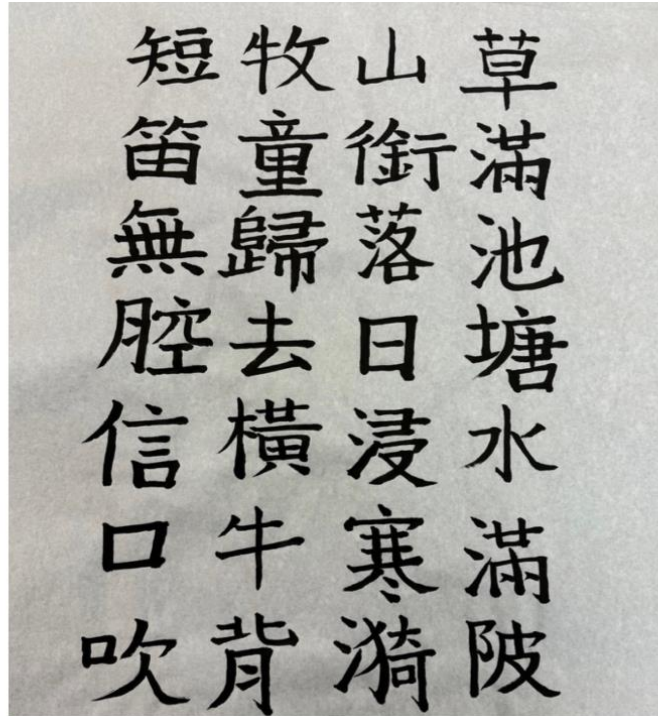 草滿池塘水滿陂
山銜落日浸寒漪
牧童歸去橫牛背
短笛無腔信口吹